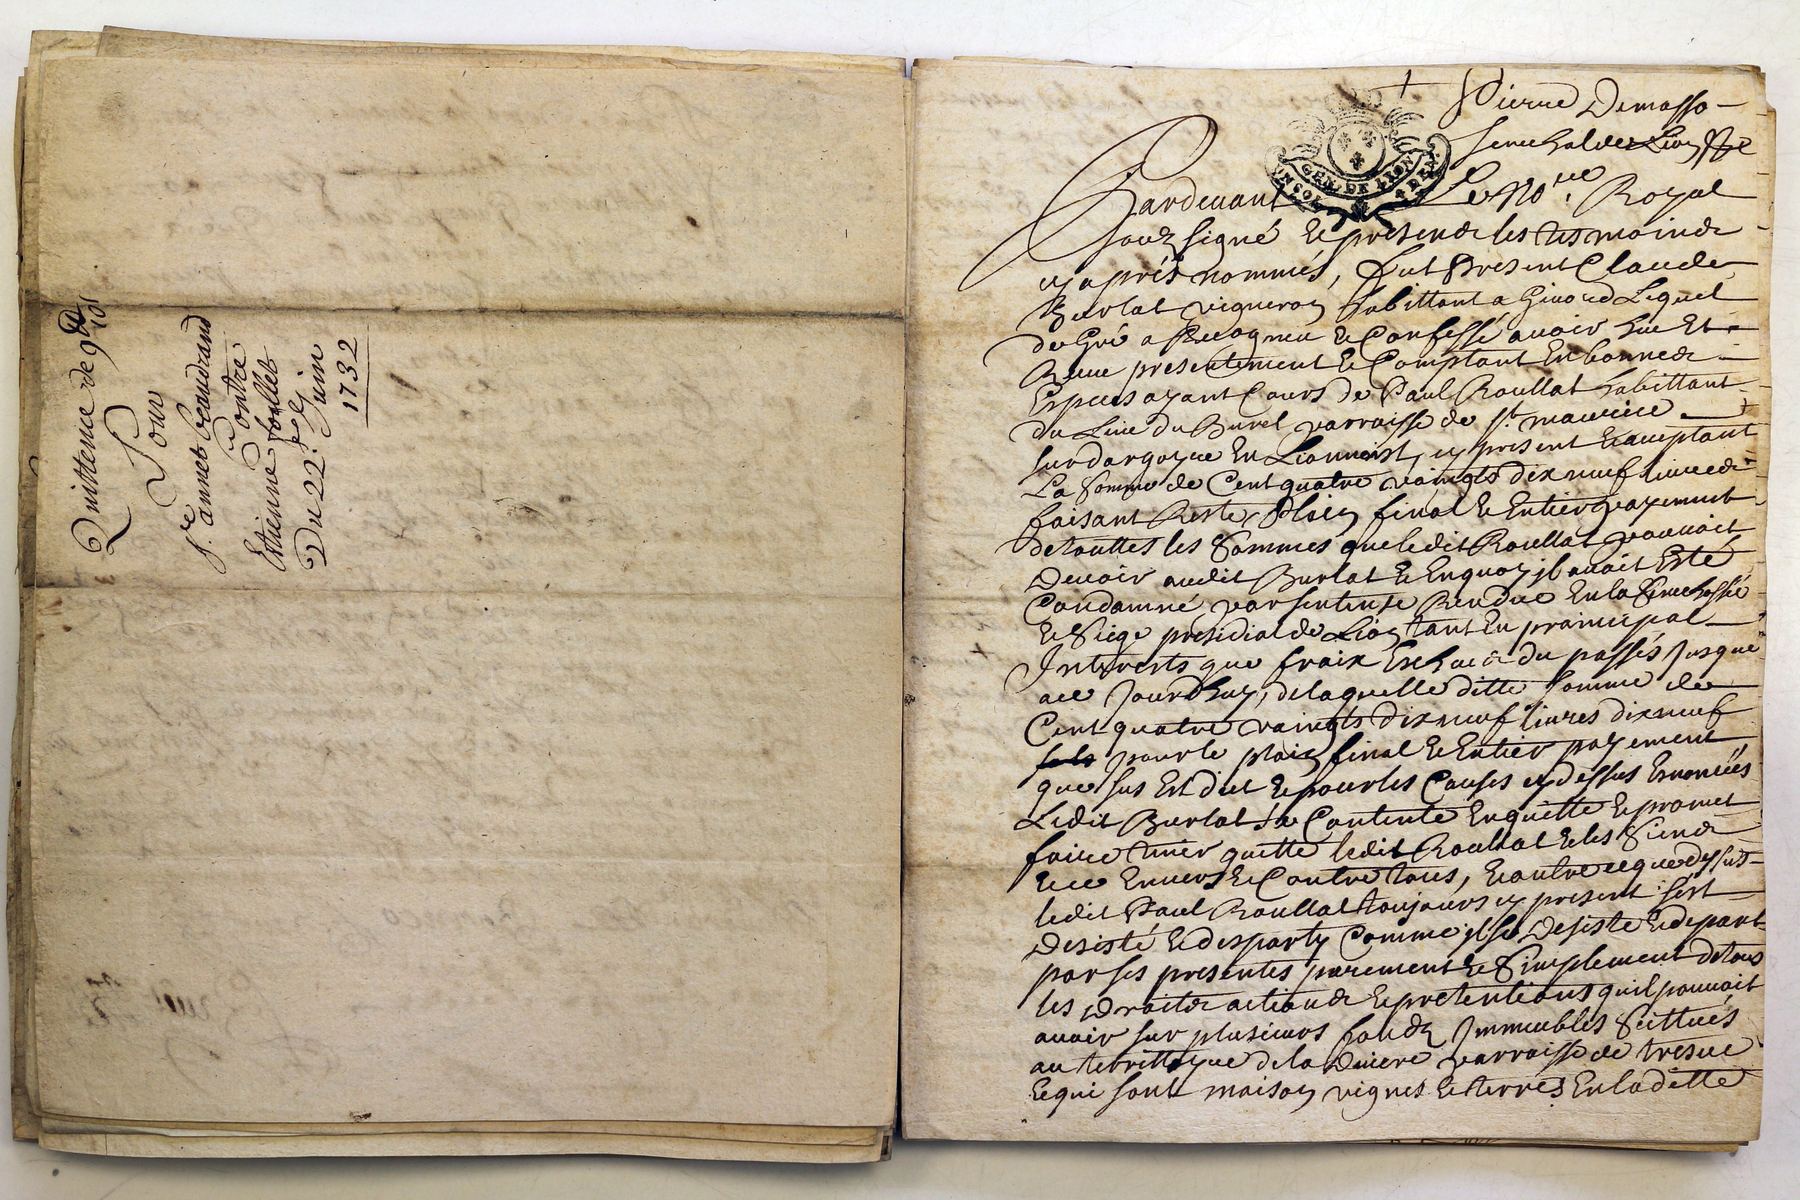 Quittence de 99lt 19s
Pour
Sr. annet beaudrand
Contre
Estienne follet
Du 22e Juin
1732
Pierre Demasso
senechal de Lion
GEN. DE LYON
Pardevant Le Nore. Royal
souz signé Et presende les tesmoinde
cy aprés nommés, fut Present Claude
Burlat vigneron habittant a Givord Lequel
de Gré a Recogneu Et Confessé avoir hüe Et
Receu presentement Et Comptant En bonnede
Especes ayant Cours de Paul Roullat habittant
du Lieu du Burel parroisse de St. maurice
sur dargoyre En Lionnoist, cy present Et aceptant
La Somme de Cent quatre vaingts dix neuf livrede
faisant Reste, Plain final Et Entier payement
de touttes les Sommes que ledit Roullat pouvoit
Devoir audit Burlat Et En quoy jl avoit Esté
Condamné par sentense Rendue En la Senechossée
Et Siege presidial de Lion tant En prainsipal
Interests que fraix du passés Jusque
a ce Jourdhuy, de laquelle ditte somme de
Cent quatre vaingts dix neuf livres dix neuf
sols pour le plain final Et Entier payement
que sus Est dict Et pour les Causes cy dessus Enoncées
Ledit Burlat se Contente En quitte Et promet
faire tenir quitte ledit Roullat Et les Siende
Et ce Envers Et Contre tous, Et outre ce que dessus
ledit Paul Roullat toujours cy present sest
Desisté Et desparty Comme jl se Desiste Et depart
par ses presentes purement Et Simplement de tous
les Droitde actionde Et pretentions qu'il pouvoit
avoir sur plusieurs fondz Jmmeubles Scittués
au territtoyre de la Parroisse de tresve
Et qui sont maison vignes Et terres En la ditte